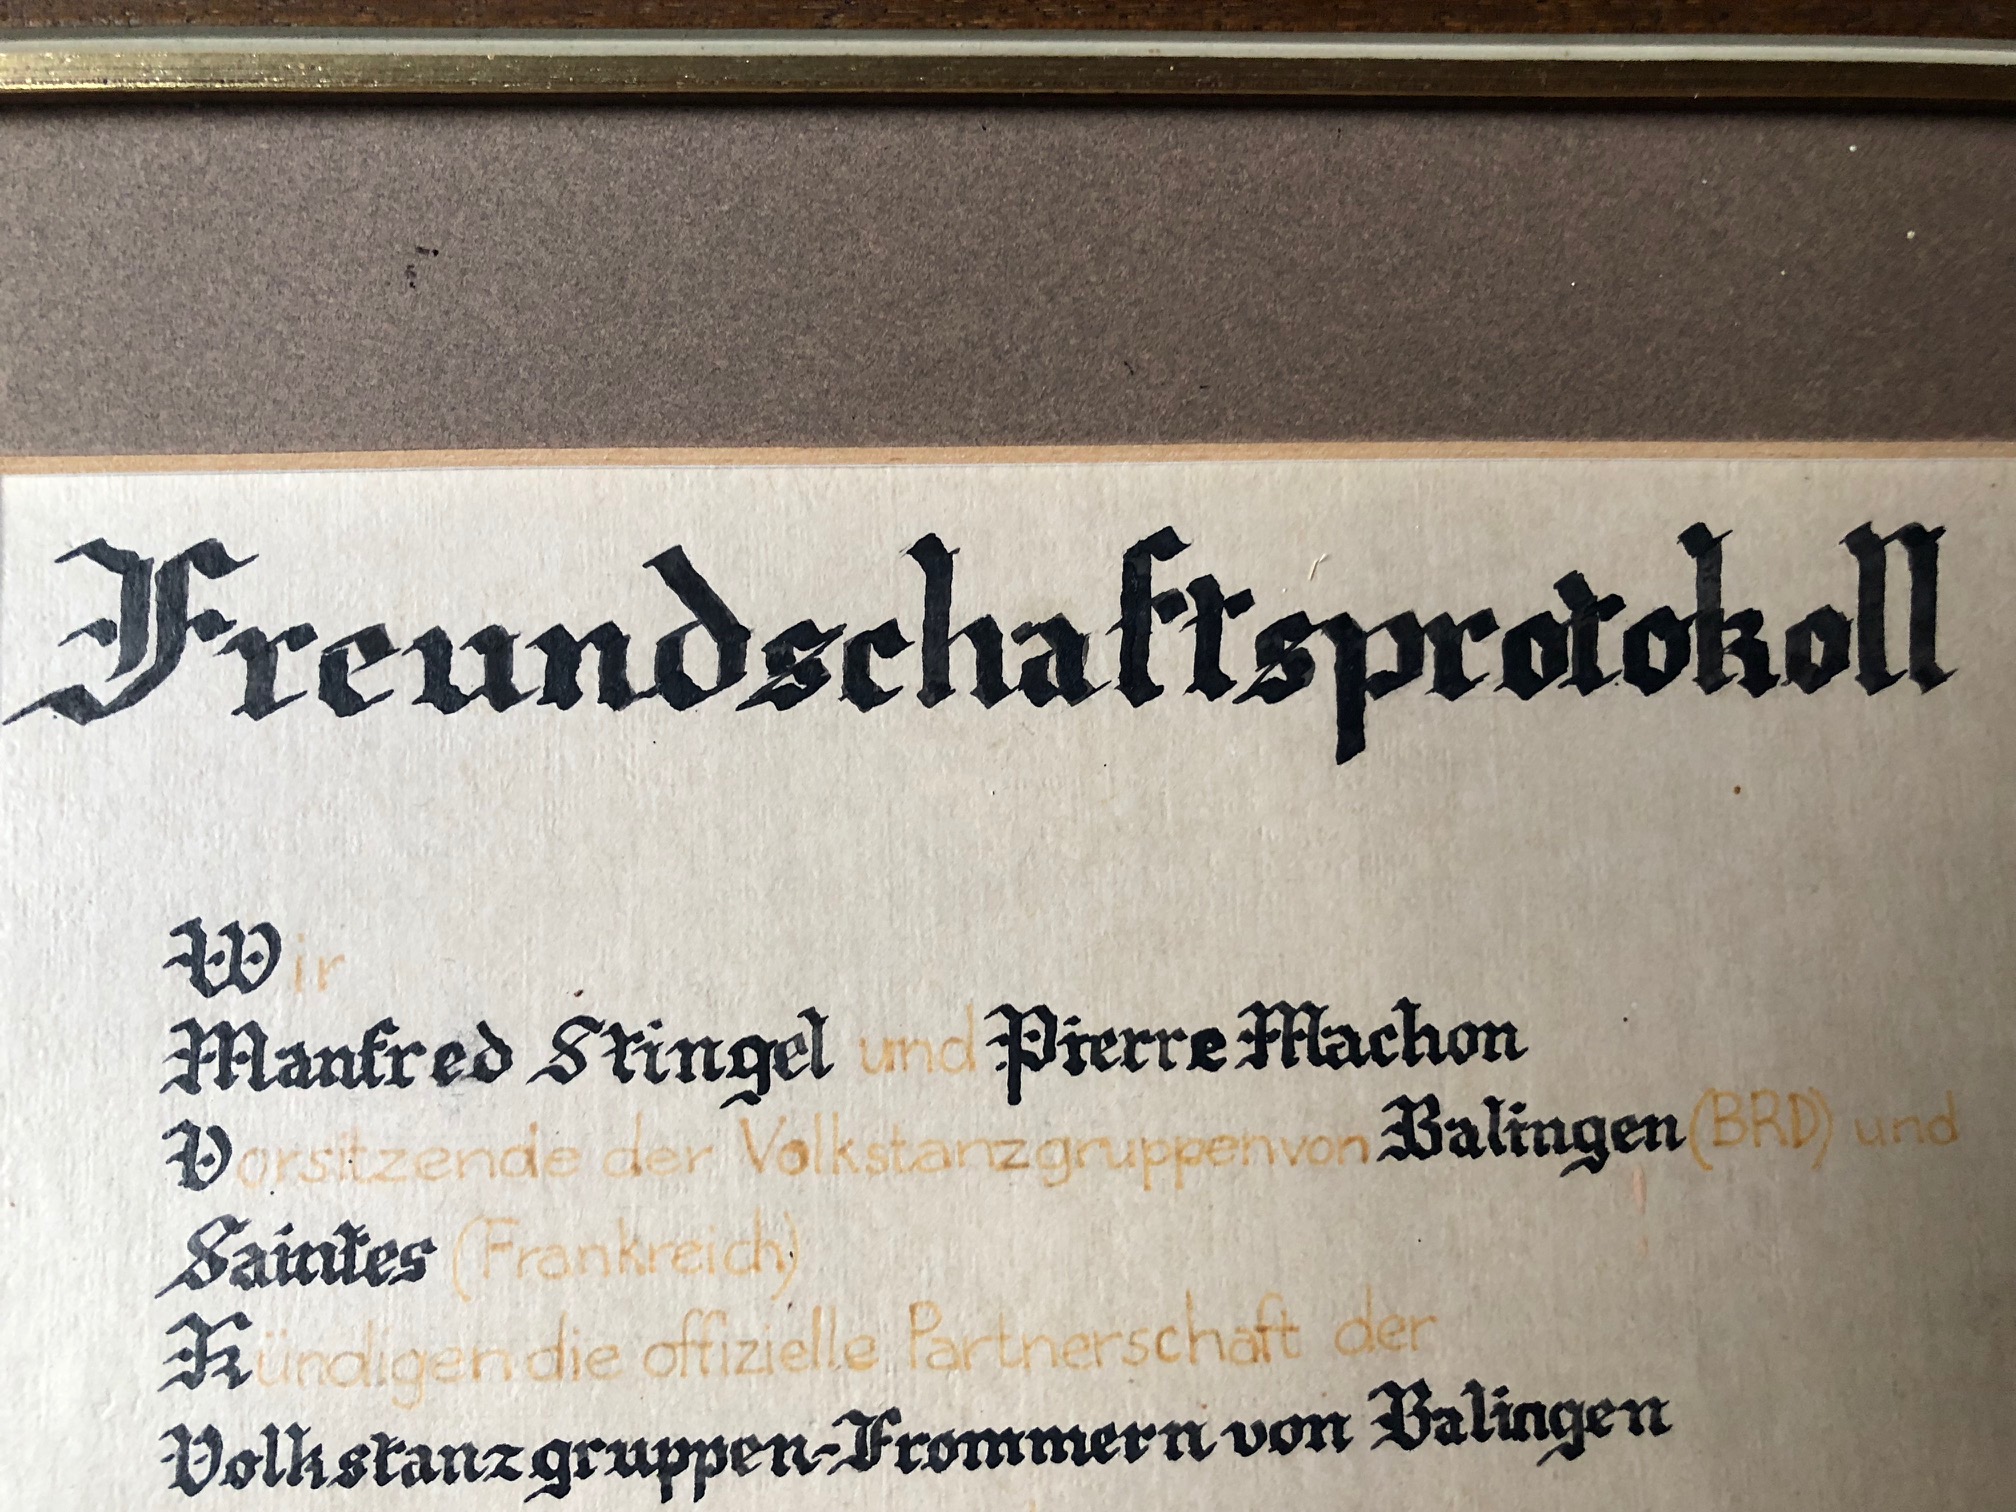 Freundschaftsprotokoll
Wir
Manfred Stingel und Pierre Machon
Vorsitzende der Volkstanzgruppen von Balingen (BRD) und
Saintes (Frankreich)
Kündigen die offizielle Partnerschaft der
Volkstanzgruppen-Frommern von Balingen